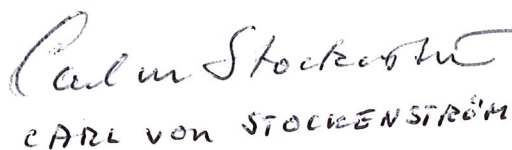 Carl von Stockenström
CARL VON STOCKENSTRÖM